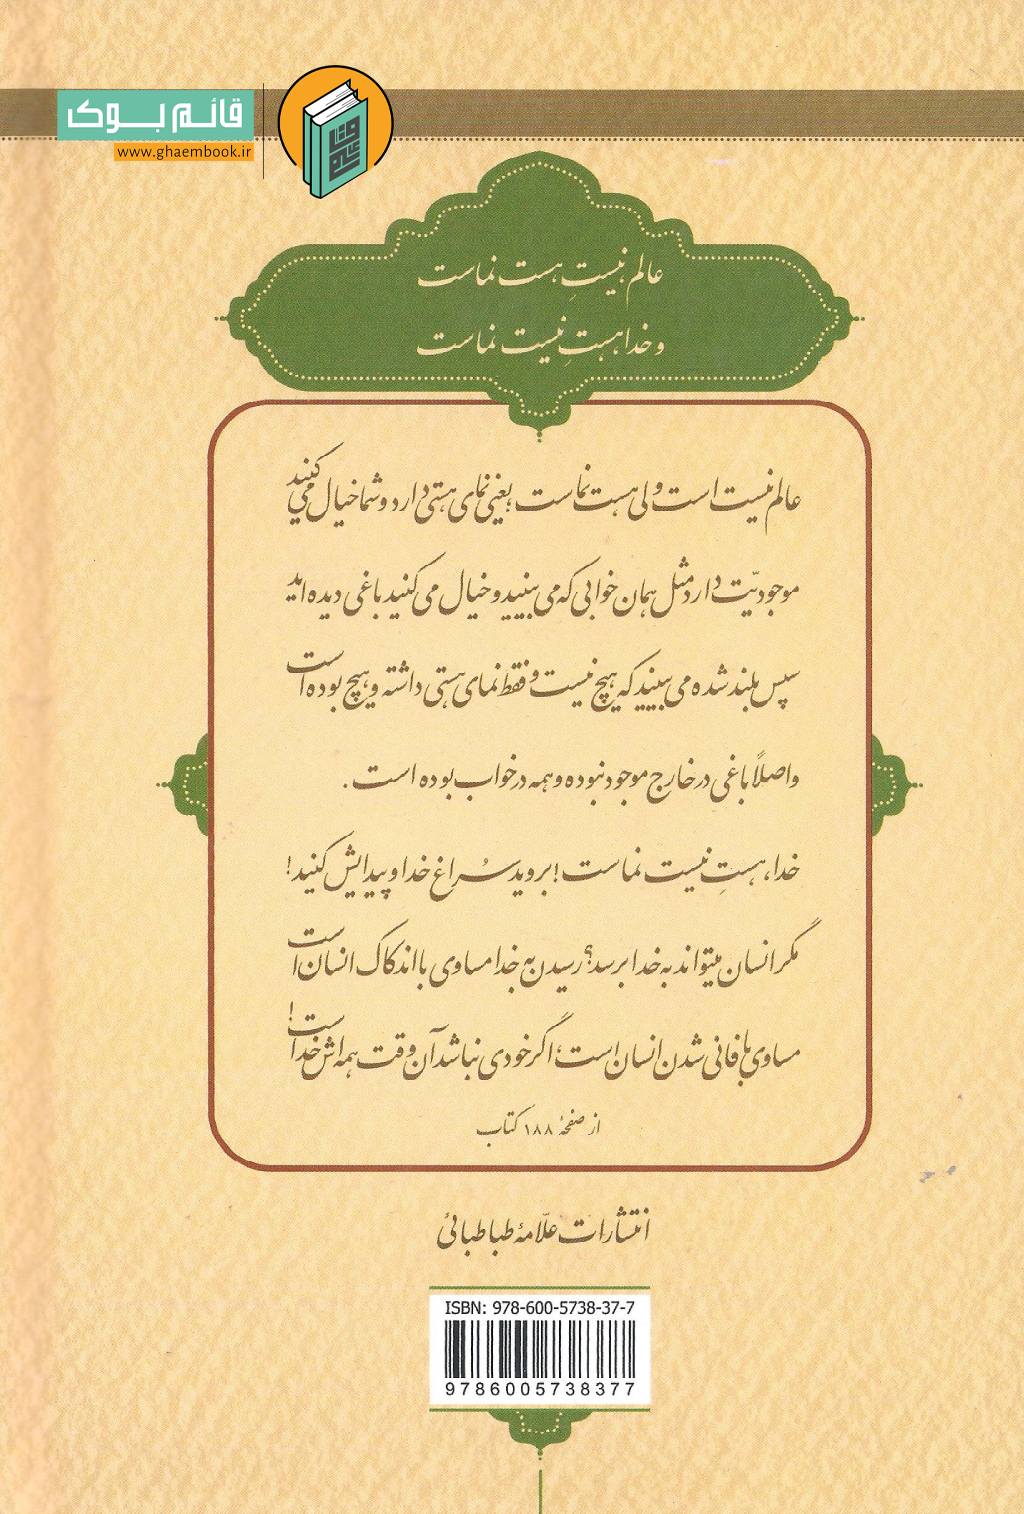 قائم بوک
www.ghaembook.ir
عالم نیستِ هست نماست
و خدا هستِ نیست نماست
عالم نیست است ولی هست نماست، یعنی نمای هستی دارد و شما خیال می کنید
موجودیّت دارد مثل همان خوابی که می بینید و خیال می کنید باغی دیده اید
سپس بلند شده می بینید که هیچ نیست و فقط نمای هستی داشته و هیچ بوده است
و اصلاً باغی در خارج موجود نبوده و همه در خواب بوده است.
خدا، هستِ نیست نماست! بروید سُراغ خدا و پیدایش کنید!
مگر انسان میتواند به خدا برسد؟ رسیدن به خدا مساوی با اندکاک انسان است
مساوی با فانی شدن انسان است؛ اگر خودی نباشد آن وقت همه اش خداست!
از صفحۀ ۱۸۸ کتاب
انتشارات علّامۀ طباطبائی
ISBN: 978-600-5738-37-7
9786005738377